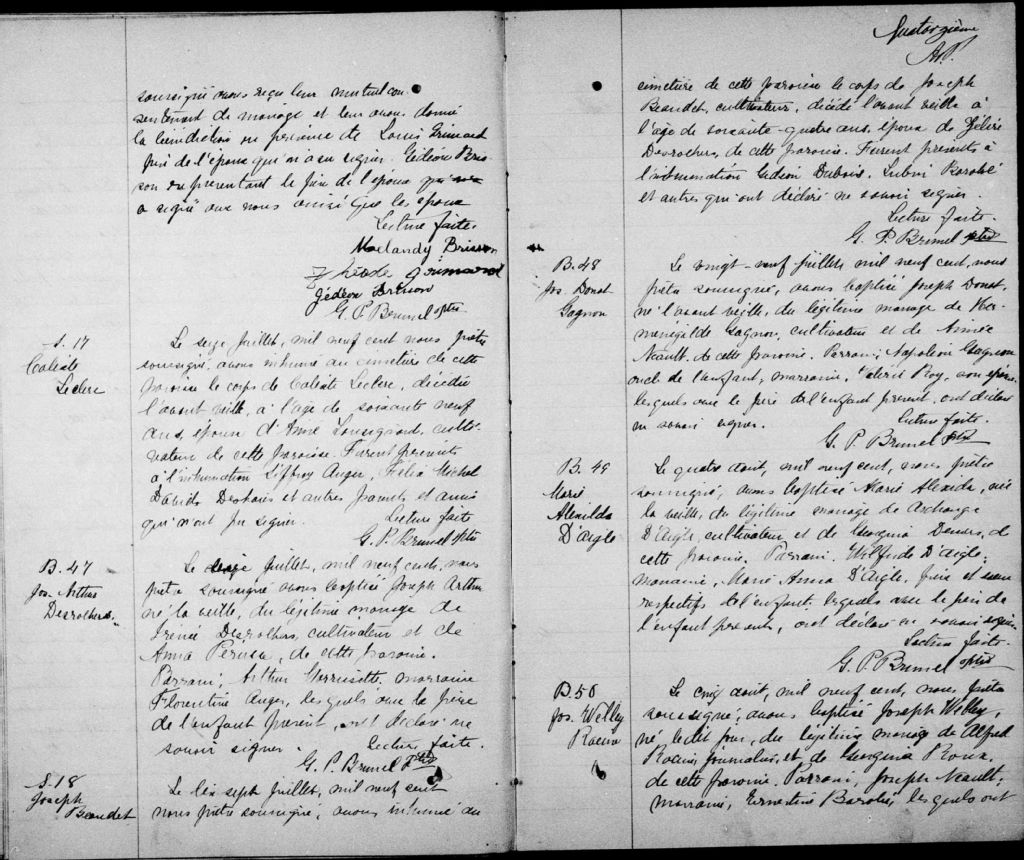 soussigné avons reçu leur mutuel con-
sentement de mariage et leur avons donné
la bénédiction en présence de Louis Grimard
père de l'époux qui n'a su signer. Gédéon Bris-
son représentant le père de l'épouse qui
a signé avec nous ainsi que les époux
Lecture faite.
Maelandy Brisson
Grimard
Gédéon Brisson
G. P. Brunel ptre
S. 17
Caliste
Leclerc
Le seize Juillet, mil neuf cent nous prêtre
soussigné, avons inhumé au cimetière de cette
paroisse le corps de Caliste Leclerc, décédé
l'avant veille, à l'âge de soixante neuf
ans, époux d'Anne Lousignard, culti-
vateur de cette paroisse. Furent présents
à l'inhumation Siffroy Auger, Félix Michel
David Desharis et autres parents et amis
qui n'ont pu signer. Lecture faite
G. P. Brunel ptre
B. 47
Jos. Arthur
Desrochers
Le seize Juillet, mil neuf cent, nous
prêtre soussigné avons baptisé Joseph Arthur
né la veille, du légitime mariage de
Irenée Desrochers, cultivateur et de
Anna Perusse, de cette paroisse.
Parrain; Arthur Morrissette, marraine
Florentine Auger, lesquels avec le père
de l'enfant présent, ont déclaré ne
savoir signer. Lecture faite.
G. P. Brunel Ptre
S. 18
Joseph
Beaudet
Le dix sept juillet, mil neuf cent
nous prêtre soussigné, avons inhumé au
Quatorzième
cimetière de cette paroisse le corps de Joseph
Beaudet, cultivateur, décédé l'avant veille à
l'âge de soixante-quatre ans, époux de Zélire
Desrochers, de cette paroisse. Furent présents à
l'inhumation Gédéon Dubois, Ludovic Barabé
et autres qui ont déclaré ne savoir signer.
Lecture faite.
G. P. Brunel ptre
B. 48
Jos. Donat
Gagnon
Le vingt-neuf juillet, mil neuf cent, nous
prêtre soussigné, avons baptisé Joseph Donat,
né l'avant veille, du légitime mariage de Her-
ménégilde Gagnon, cultivateur et de Aimée
Neault, de cette paroisse. Parrain; Napoléon Gagnon
oncle de l'enfant, marraine, Valérie Roy, son épouse
lesquels avec le père de l'enfant présent, ont déclaré
ne savoir signer. Lecture faite.
G. P. Brunel ptre
B. 49
Marie
Alexilda
D'Aigle
Le quatre août, mil neuf cent, nous prêtre
soussigné, avons baptisé Marie Alexida, née
la veille, du légitime mariage de Archange
D'Aigle, cultivateur et de Georgina Demers, de
cette paroisse. Parrain. Wilfrid D'Aigle;
marraine, Marie Anna D'Aigle, frère et sœur
respectifs de l'enfant, lesquels avec le père de
l'enfant présents, ont déclaré ne savoir signer.
Lecture faite.
G. P. Brunel ptre
B. 50
Jos. Welley
Racine
Le cinq août, mil neuf cent, nous prêtre
soussigné, avons baptisé Joseph Welley,
né ledit jour, du légitime mariage de Alfred
Racine, journalier, et de Georgina Roux,
de cette paroisse. Parrain, Joseph Neault;
marraine, Ernestine Barabé, lesquels ont